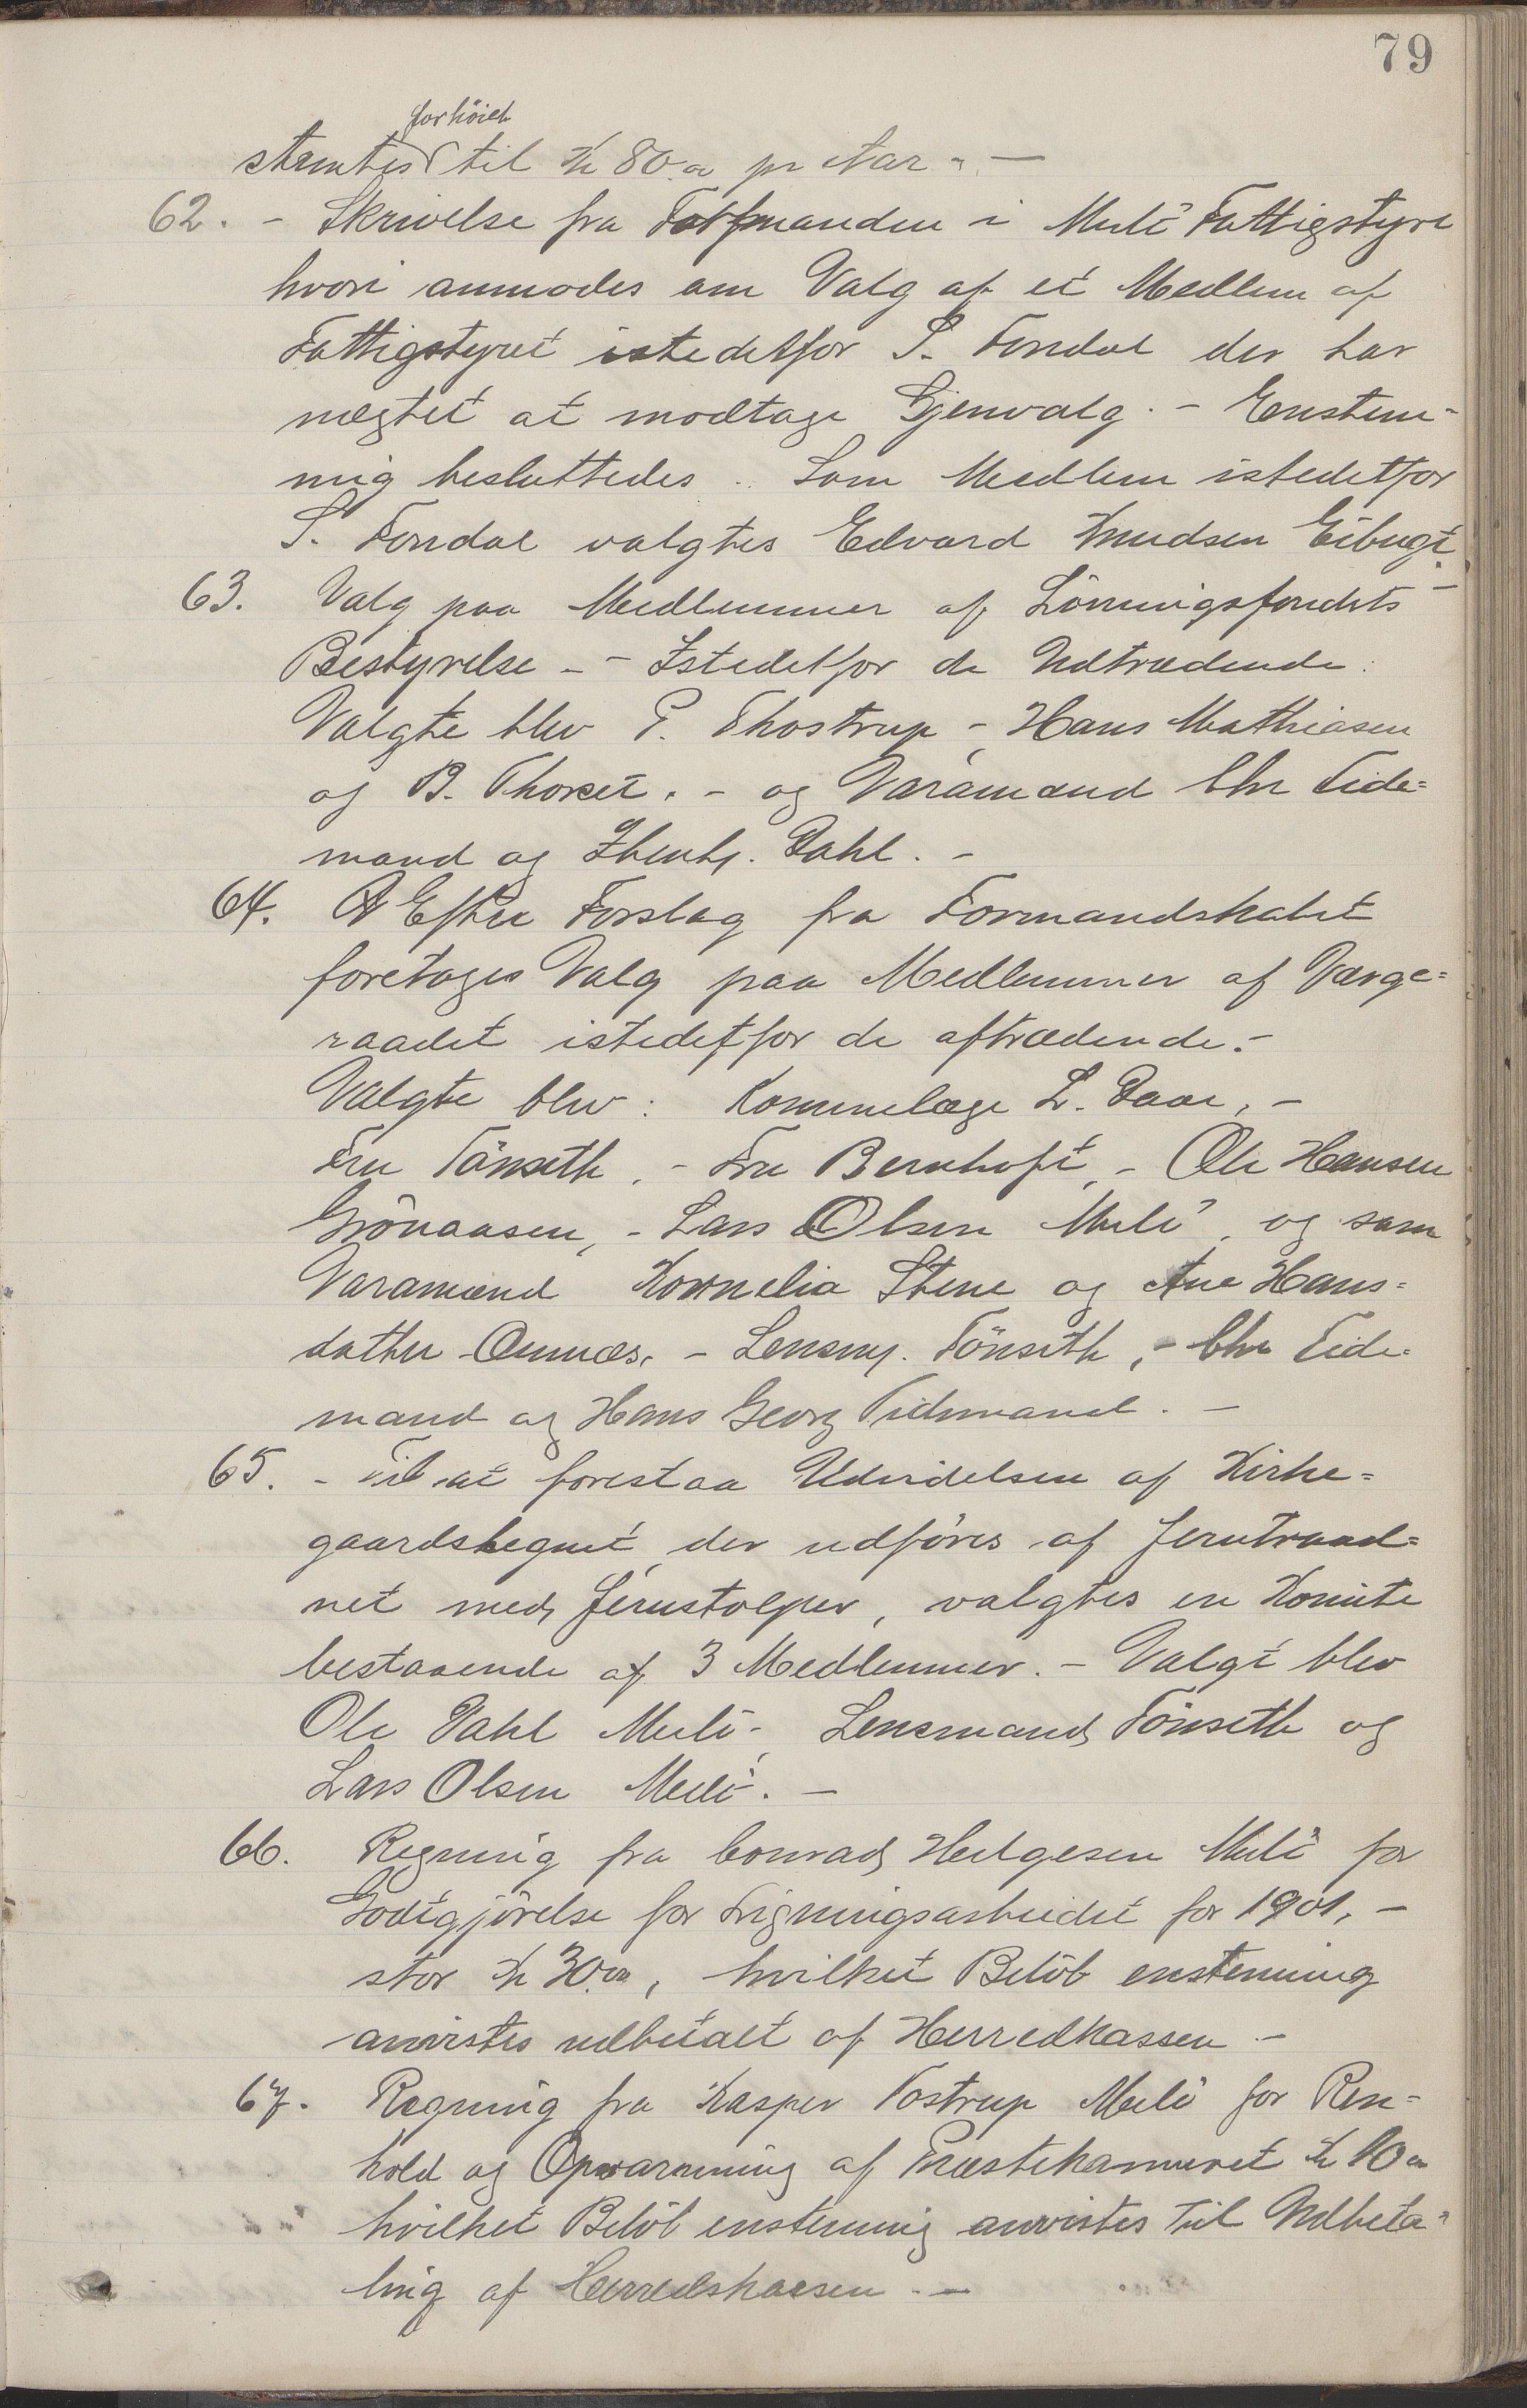 79
forhöiet
stemtes til Kr 80.00 pr Aar. —
62. - Skrivelse fra Formanden i Melö Fattigstyre
hvori anmodes om Valg af et Medlem af
Fattigstyret istedetfor S. Fondal der har
nægtet at modtage Gjenvalg. - Enstem-
mig besluttedes. Som Medlem istedetfor
S. Fondal valgtes Edvard Knudsen Eibugt. -
63. Valg paa Medlemmer af Lönningsfondets
Bestyrelse - - Istedetfor de Udtrædende:
Valgte blev P. Thostrup -, Hans Mathiasen
og B. Thoset. - og Varamænd Chr Tide=
mand og Ebenh. Dahl. -
64. Efter Forslag fra Formandskabet
foretoges Valg paa Medlemmer af Værge=
raadet istedetfor de aftrædende. -
Valgte blev: Kommunelæge L. Daae, -
Fru Tönseth, - Fru Bernhoft, - Ole Hansen
Grönaasen, - Lars Olsen Melö, og som
Varamænd Kornelia Stene og Ane Hans=
datter Ørnæs, - Lensm. Tönseth, - Chr Tide=
mand og Hans Georg Tidemand. -
65. - Til at forestaa Udvidelsen af Kirke=
gaardshegnet, der udföres af Jerntraad=
net med Jernstolper, valgtes en Komite
bestaaende af 3 Medlemmer. - Valgt blev
Ole Dahl Melö -, Lensmand Tönseth og
Lars Olsen Melö. —
66. Regning fra Conrad Helgesen Melö for
Godtgjörelse for Ligningsarbeidet for 1901, -
stor Kr 30.00, hvilket Belöb enstemmig
anvistes udbetalt af Herredkassen -
67. Regning fra Kasper Tostrup Melö for Ren=
hold og Opvarmning af Præstekammeret Kr 10.00
hvilket Belöb enstemmig anvistes til Udbeta=
ling af Herredskassen. —